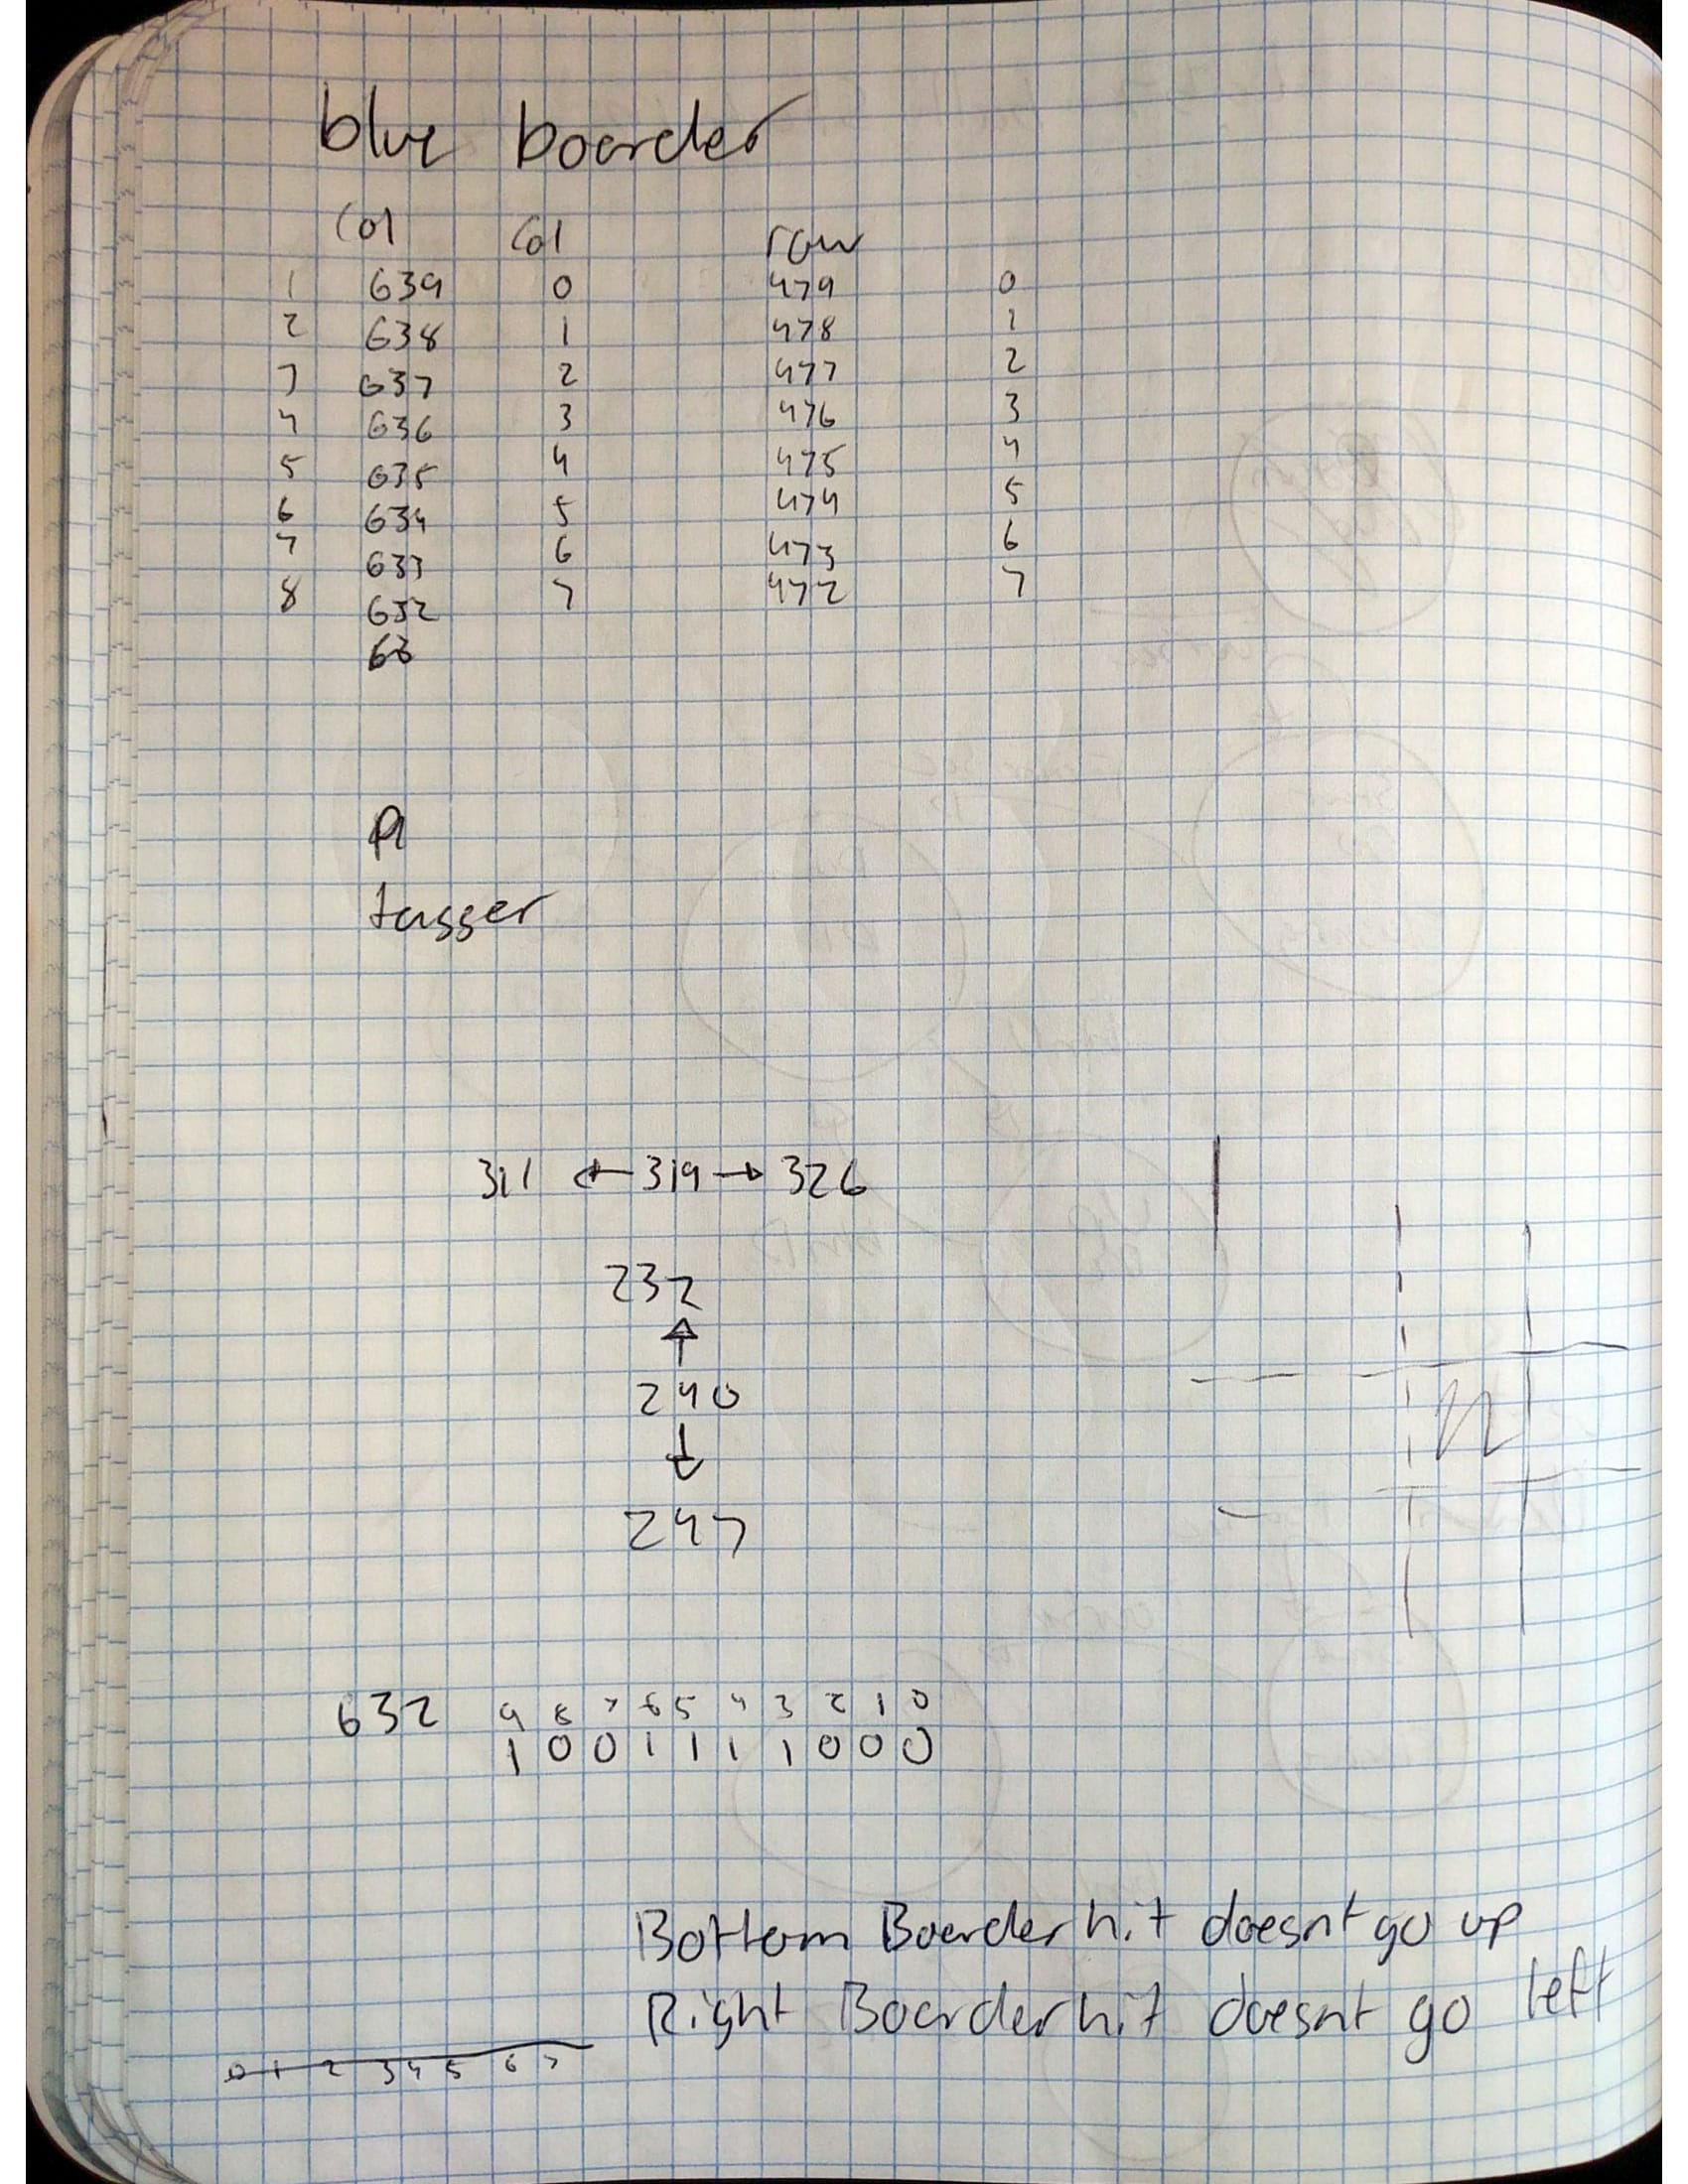 blue boarder
Col Col row
1 639 0 479 0
2 638 1 478 1
3 637 2 477 2
4 636 3 476 3
5 635 4 475 4
6 634 5 474 5
7 633 6 473 6
8 632 7 472 7
63
tagger
311 ← 319 → 326
232
↑
240
↓
247
632 9 8 7 6 5 4 3 2 1 0
1 0 0 1 1 1 1 0 0 0
Bottom Boarder hit doesnt go up
Right Boarder hit doesnt go left
0 1 2 3 4 5 6 7